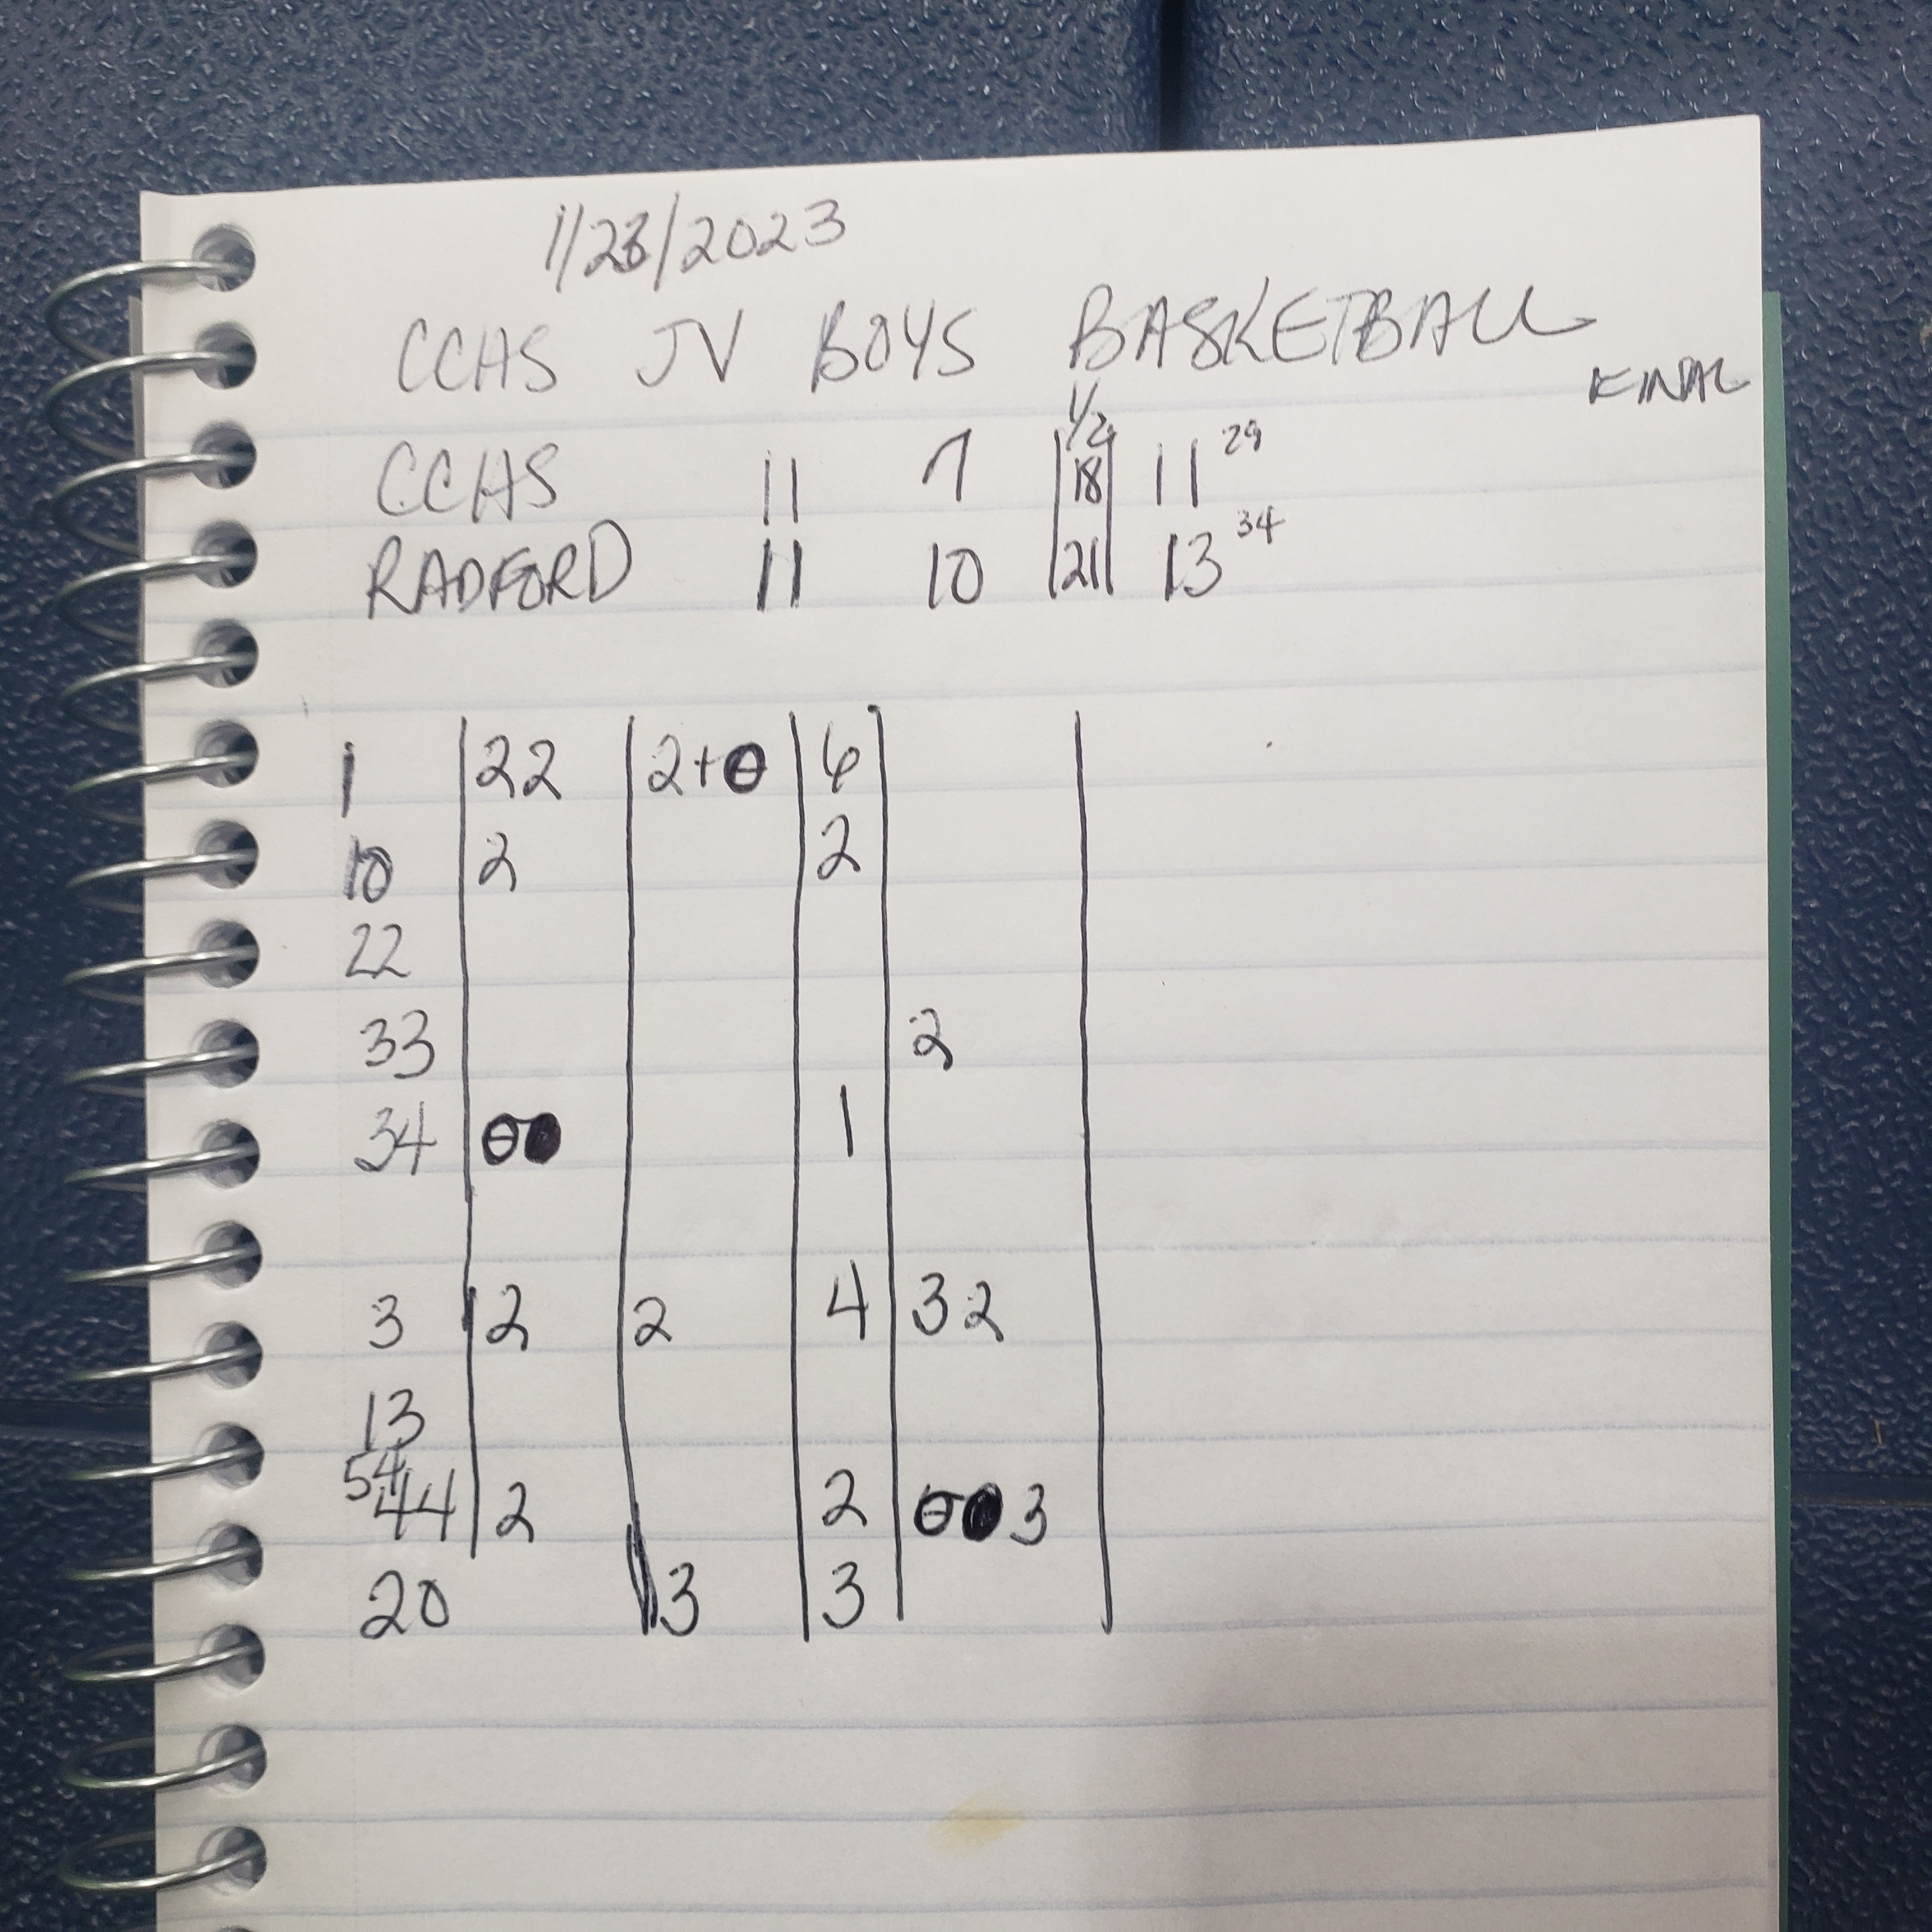 1/23/2023
CCHS JV BOYS BASKETBALL
FINAL
1/2
CCHS 11 7 18 11 29
RADFORD 11 10 21 13 34
1 22 2+ 6
10 2 2
22
33 2
34 1
3 2 2 4 32
13
54
44 2 2 3
20 3 3